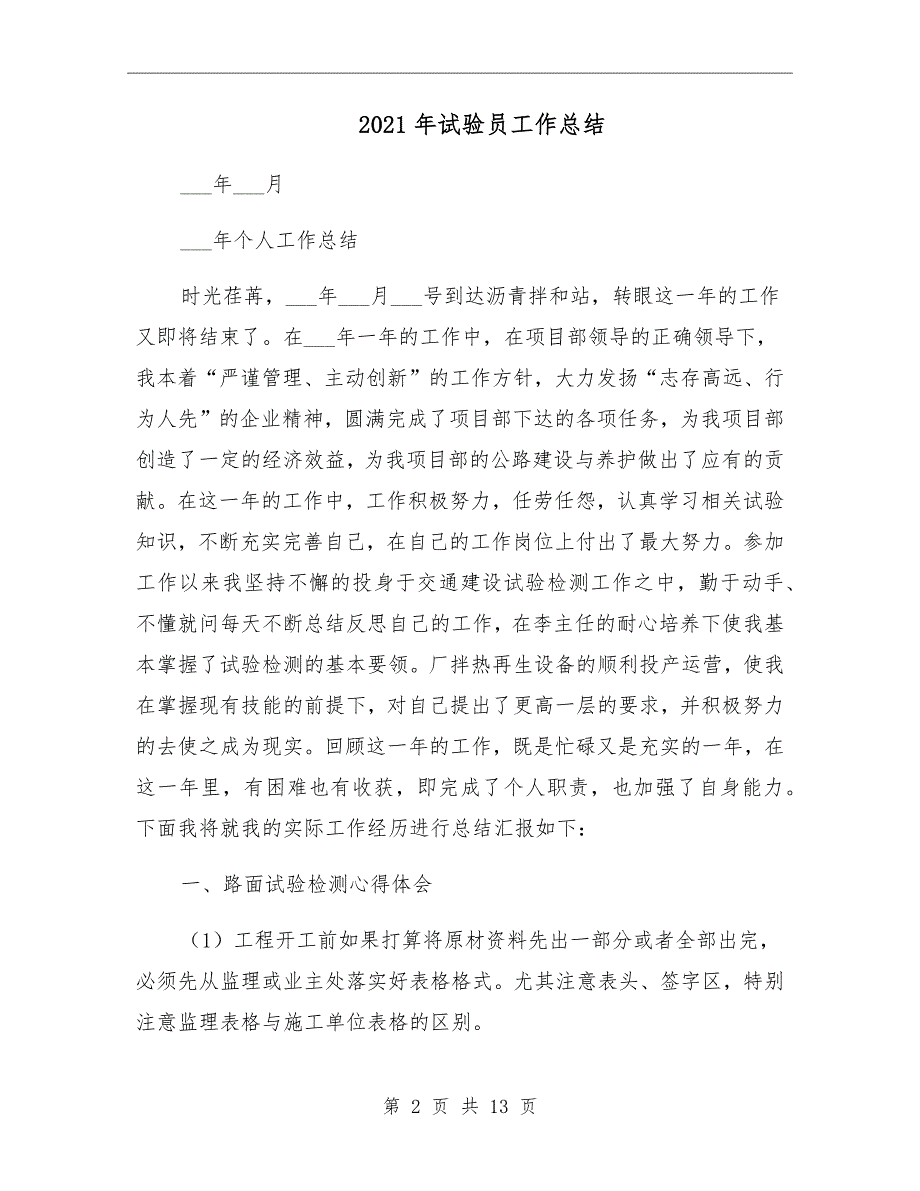 2021 年试验员工作总结
___年___月
___年个人工作总结
时光荏苒，___年___月___号到达沥青拌和站，转眼这一年的工作
又即将结束了。在___年一年的工作中，在项目部领导的正确领导下，
我本着“严谨管理、主动创新”的工作方针，大力发扬“志存高远、行
为人先”的企业精神，圆满完成了项目部下达的各项任务，为我项目部
创造了一定的经济效益，为我项目部的公路建设与养护做出了应有的贡
献。在这一年的工作中，工作积极努力，任劳任怨，认真学习相关试验
知识，不断充实完善自己，在自己的工作岗位上付出了最大努力。参加
工作以来我坚持不懈的投身于交通建设试验检测工作之中，勤于动手、
不懂就问每天不断总结反思自己的工作，在李主任的耐心培养下使我基
本掌握了试验检测的基本要领。厂拌热再生设备的顺利投产运营，使我
在掌握现有技能的前提下，对自己提出了更高一层的要求，并积极努力
的去使之成为现实。回顾这一年的工作，既是忙碌又是充实的一年，在
这一年里，有困难也有收获，即完成了个人职责，也加强了自身能力。
下面我将就我的实际工作经历进行总结汇报如下：
一、路面试验检测心得体会
（1）工程开工前如果打算将原材资料先出一部分或者全部出完，
必须先从监理或业主处落实好表格格式。尤其注意表头、签字区，特别
注意监理表格与施工单位表格的区别。
第 2 页 共 13 页